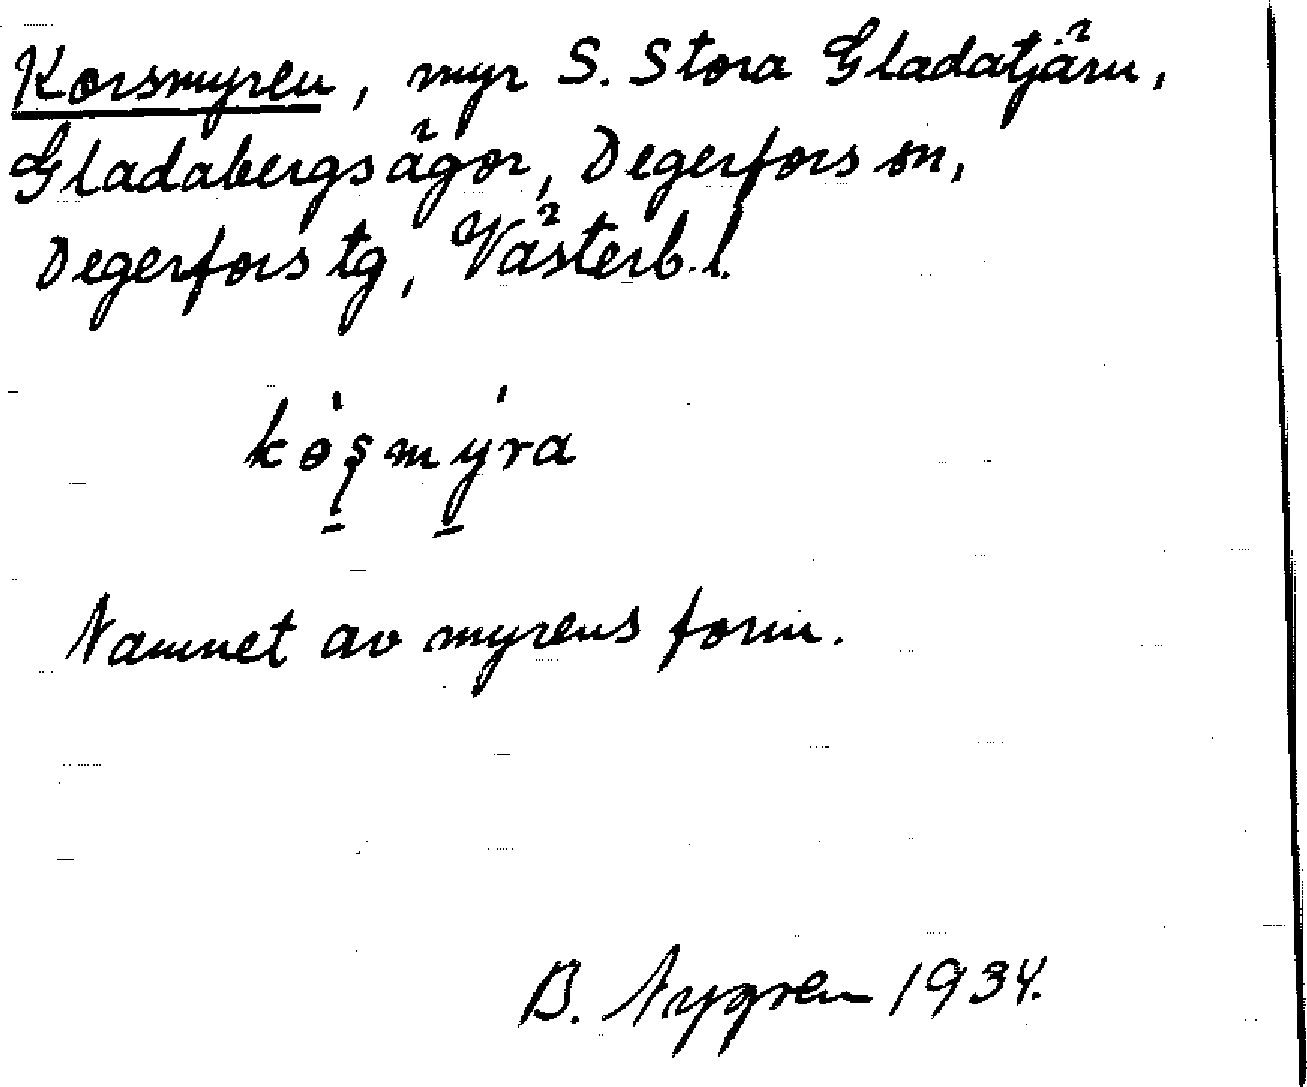 Korsmyren, myr S. Stora Gladatjärn,
Gladabergsägor, Degerfors sn,
Degerfors tg, Västerb. l.
kòʂmýra
Namnet av myrens form.
B. Nygren 1934.